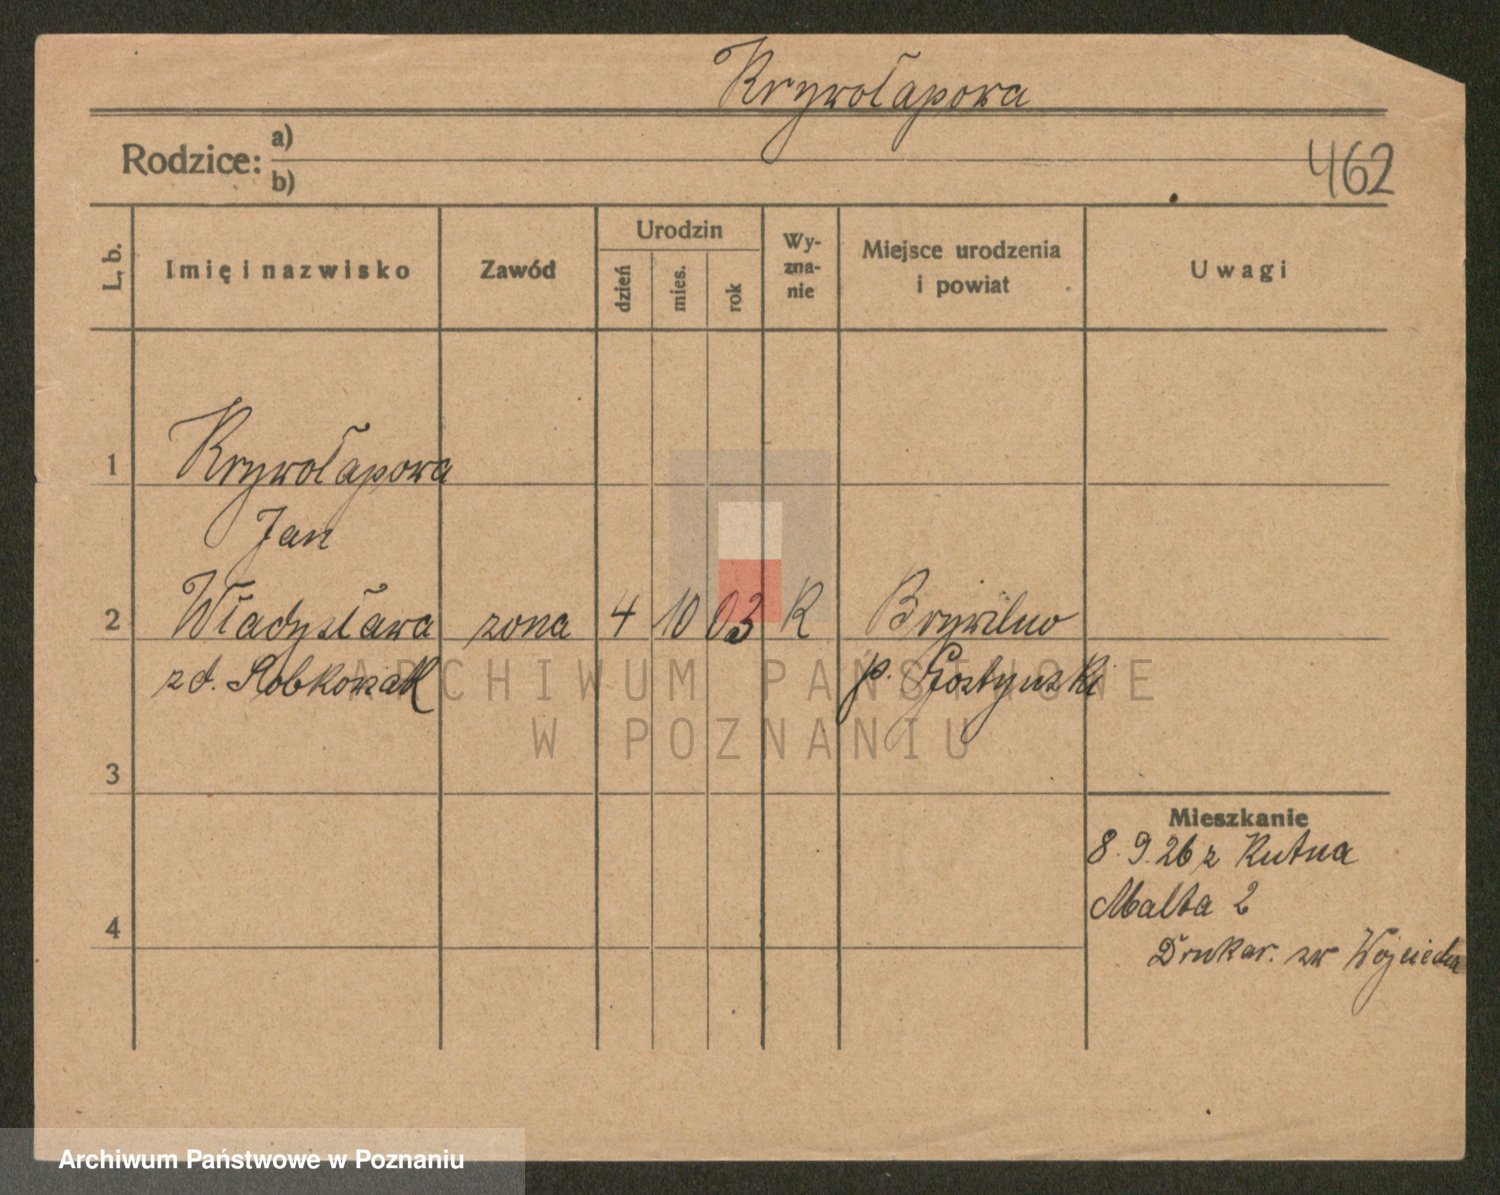 Krywołapowa
Rodzice: a)
b)
462
L. b.
Imię i nazwisko
Zawód
Urodzin
dzień
mies.
rok
Wy-
zna-
nie
Miejsce urodzenia
i powiat
Uwagi
1
Krywołapowa
Jan
2
Władysława
żona
4
10
03
R
Brwilno
zd.
p. Gostyński
3
4
Mieszkanie
8. 9. 26 z Kutna
Malta 2
Drukar. św Wojciecha
ARCHIWUM PAŃSTWOWE
W POZNANIU
Archiwum Państwowe w Poznaniu